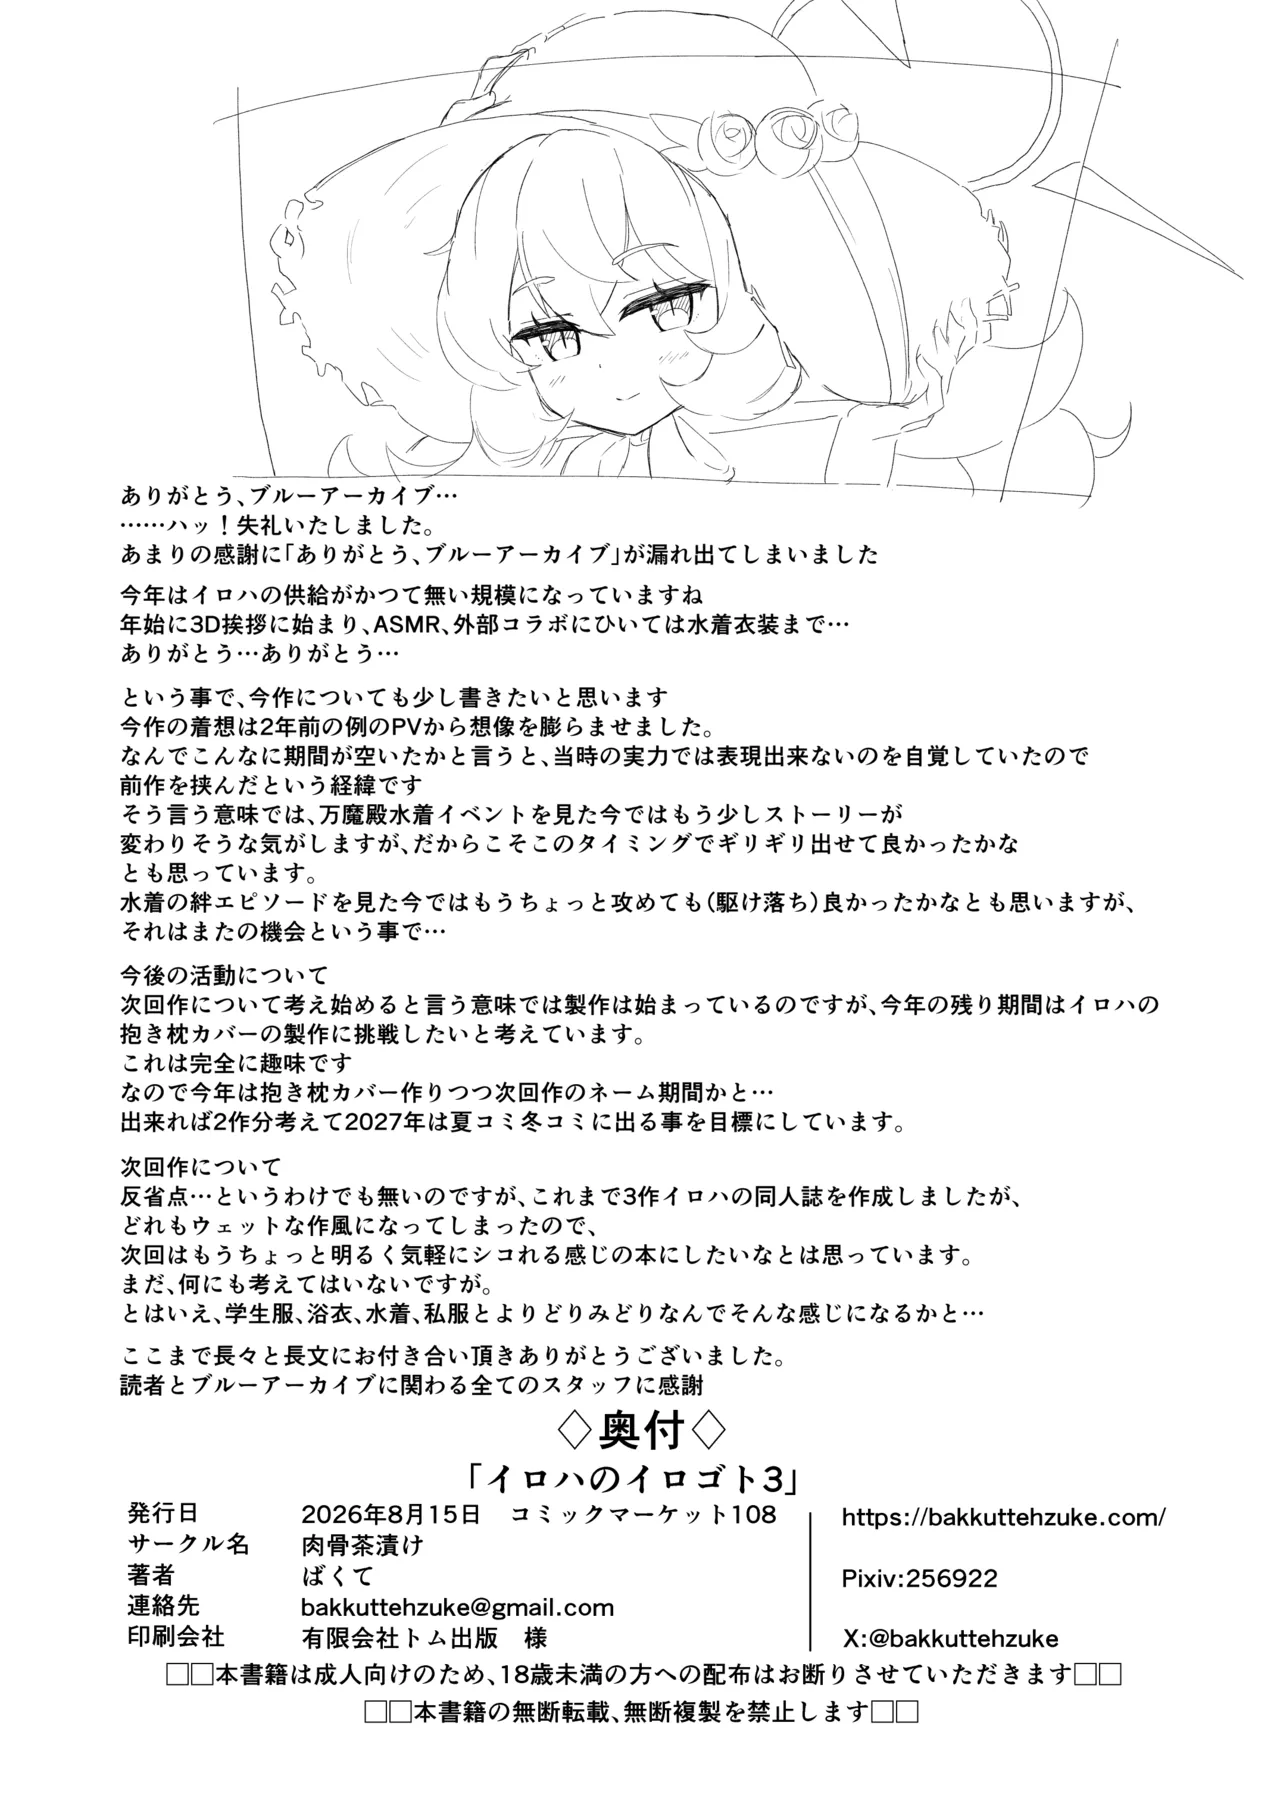 ありがとう、ブルーアーカイブ…
……ハッ！失礼いたしました。
あまりの感謝に「ありがとう、ブルーアーカイブ」が漏れ出てしまいました
今年はイロハの供給がかつて無い規模になっていますね
年始に3D挨拶に始まり、ASMR、外部コラボにひいては水着衣装まで…
ありがとう…ありがとう…
という事で、今作についても少し書きたいと思います
今作の着想は2年前の例のPVから想像を膨らませました。
なんでこんなに期間が空いたかと言うと、当時の実力では表現出来ないのを自覚していたので
前作を挟んだという経緯です
そう言う意味では、万魔殿水着イベントを見た今ではもう少しストーリーが
変わりそうな気がしますが、だからこそこのタイミングでギリギリ出せて良かったかな
とも思っています。
水着の絆エピソードを見た今ではもうちょっと攻めても（駆け落ち）良かったかなとも思いますが、
それはまたの機会という事で…
今後の活動について
次回作について考え始めると言う意味では製作は始まっているのですが、今年の残り期間はイロハの
抱き枕カバーの製作に挑戦したいと考えています。
これは完全に趣味です
なので今年は抱き枕カバー作りつつ次回作のネーム期間かと…
出来れば2作分考えて2027年は夏コミ冬コミに出る事を目標にしています。
次回作について
反省点…というわけでも無いのですが、これまで3作イロハの同人誌を作成しましたが、
どれもウェットな作風になってしまったので、
次回はもうちょっと明るく気軽にシコれる感じの本にしたいなとは思っています。
まだ、何にも考えてはいないですが。
とはいえ、学生服、浴衣、水着、私服とよりどりみどりなんでそんな感じになるかと…
ここまで長々と長文にお付き合い頂きありがとうございました。
読者とブルーアーカイブに関わる全てのスタッフに感謝
◇奥付◇
「イロハのイロゴト3」
発行日 2026年8月15日　コミックマーケット108
サークル名 肉骨茶漬け
著者 ばくて
連絡先 bakkuttehzuke@gmail.com
印刷会社 有限会社トム出版　様
https://bakkuttehzuke.com/
Pixiv:256922
X:@bakkuttehzuke
□□本書籍は成人向けのため、18歳未満の方への配布はお断りさせていただきます□□
□□本書籍の無断転載、無断複製を禁止します□□